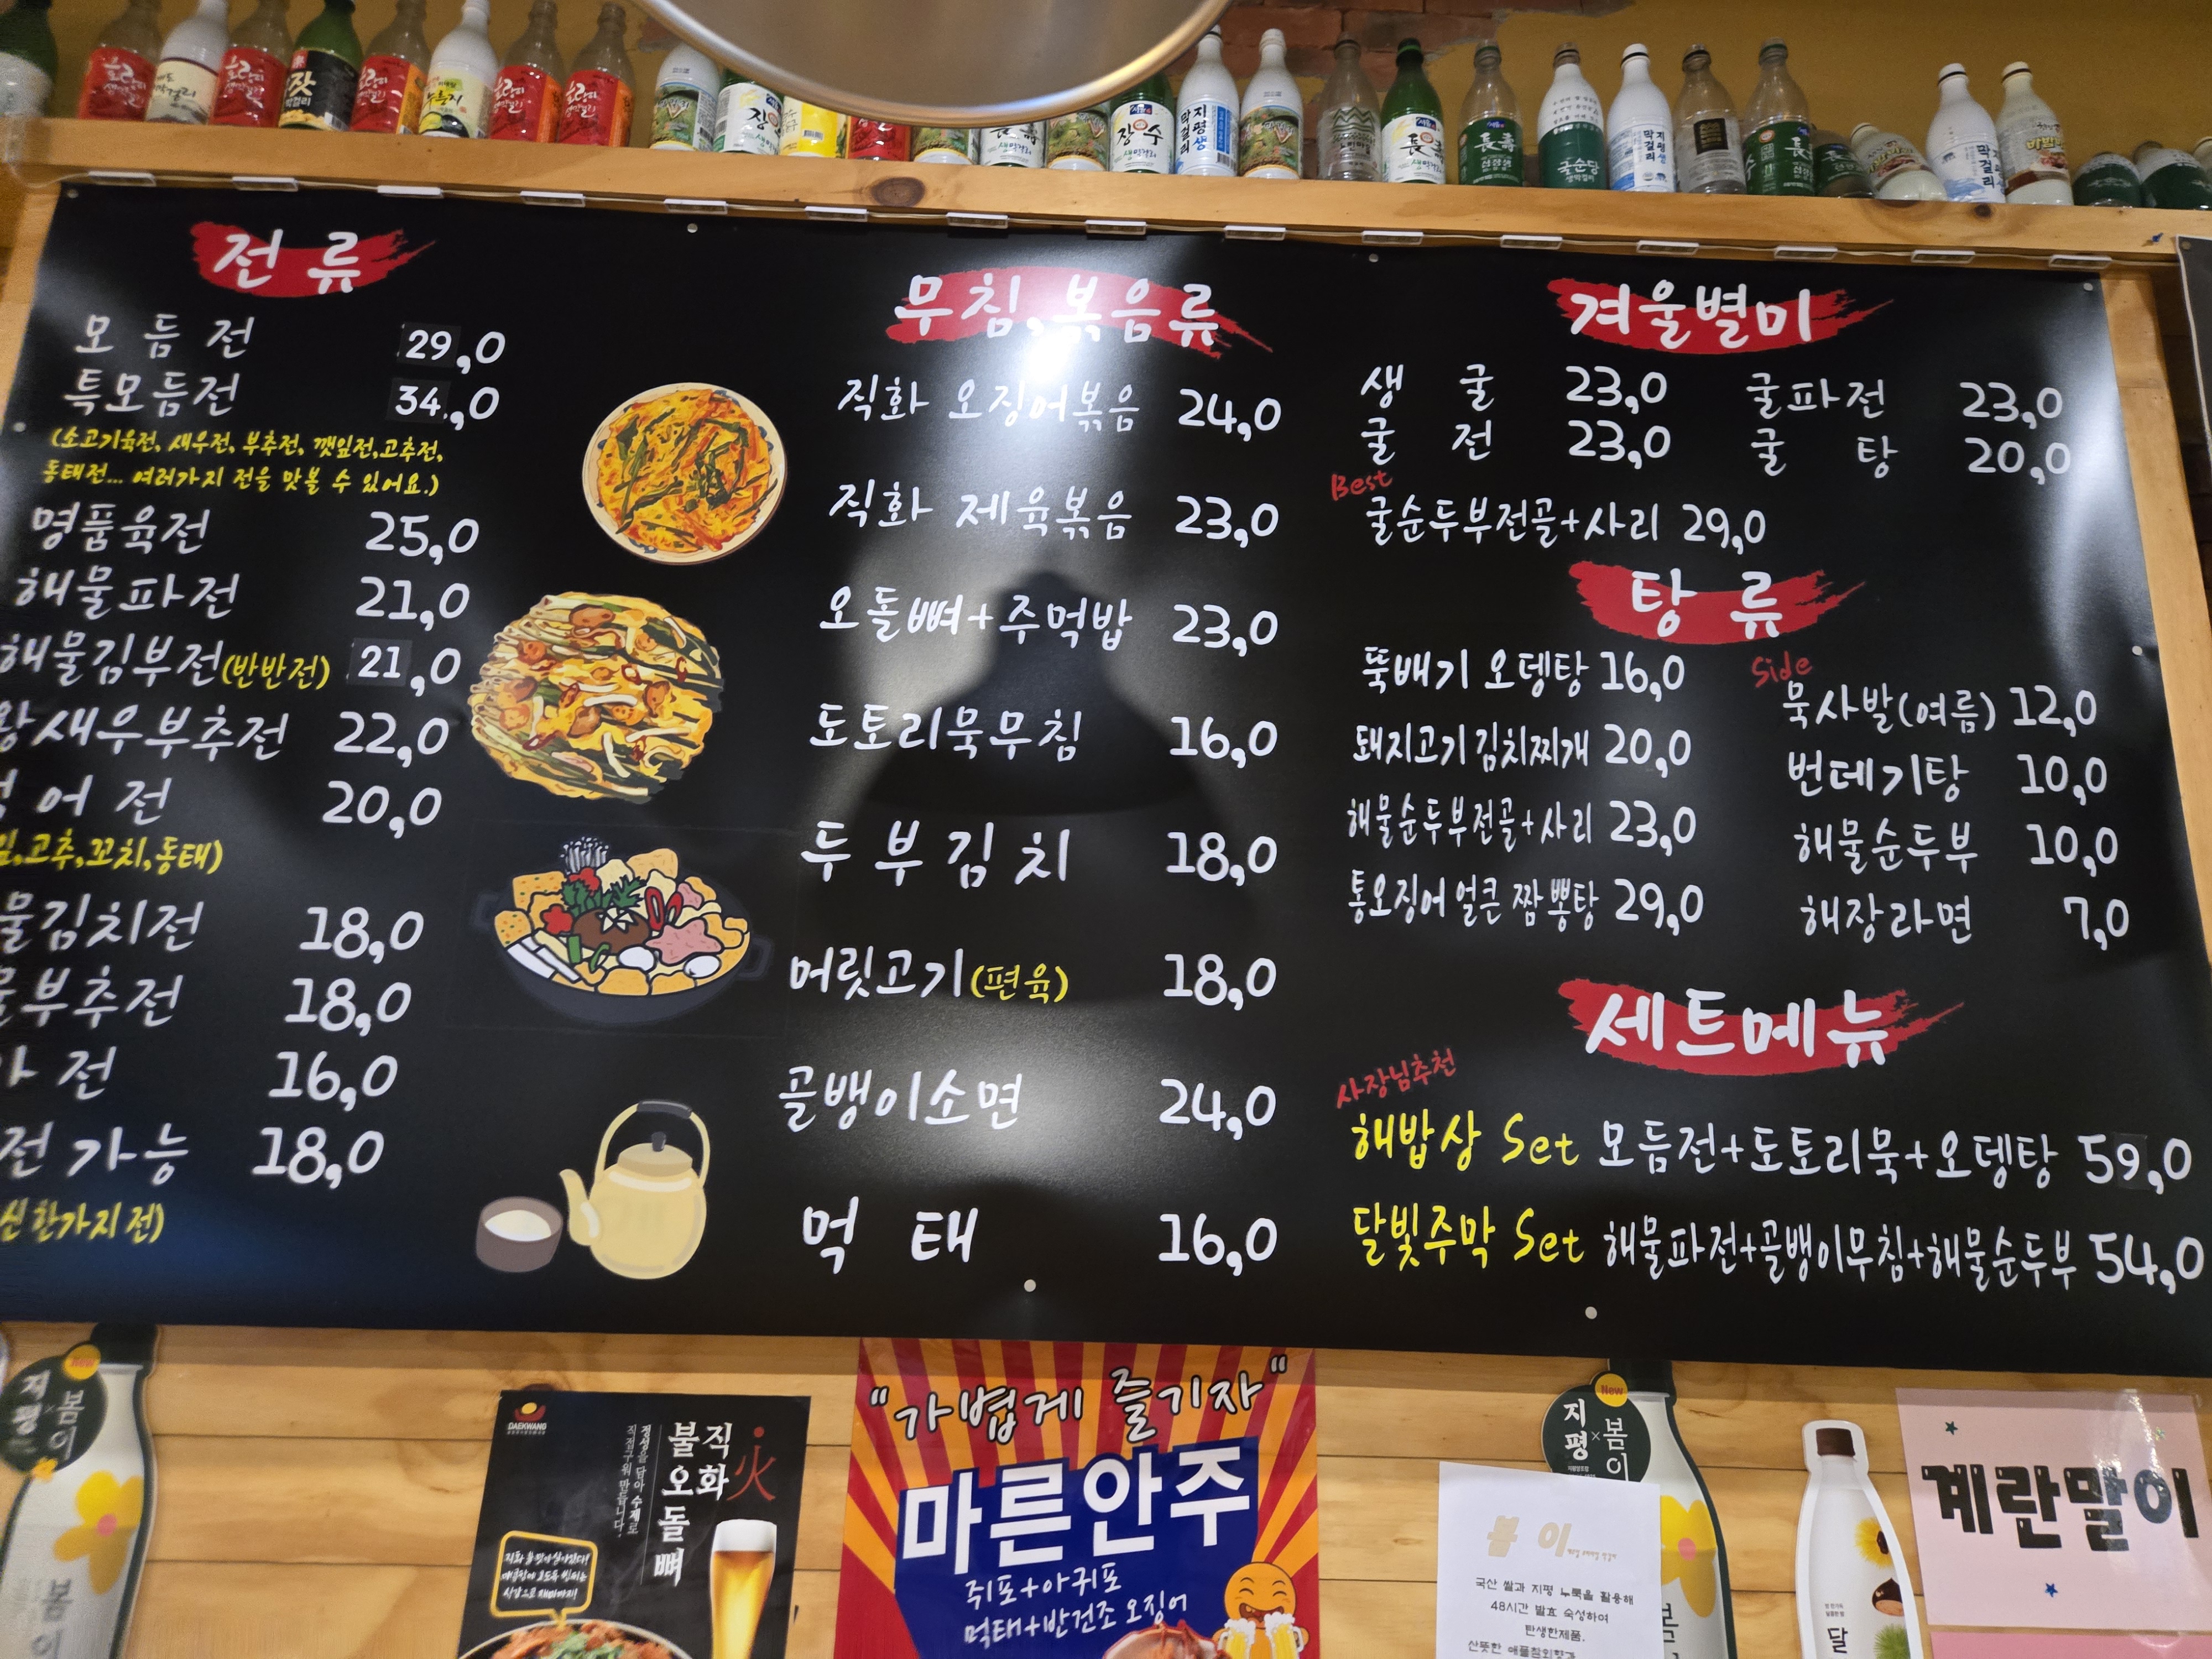 전 류
모 듬 전 29,0
특모듬전 34.,0
(소고기육전, 새우전, 부추전, 깻잎전,고추전,
동태전... 여러가지 전을 맛볼 수 있어요.)
명품육전 25,0
해물파전 21,0
해물김부전(반반전) 21,0
왕새우부추전 22,0
어 전 20,0
고추,꼬치,동태)
물김치전 18,0
물부추전 18,0
전 16,0
전 가능 18,0
신 한가지 전)
무침,볶음류
직화 오징어볶음 24,0
직화 제육볶음 23,0
오돌뼈+주먹밥 23,0
도토리묵무침 16,0
두 부 김 치 18,0
머릿고기(편육) 18,0
골뱅이소면 24,0
먹 태 16,0
겨울별미
생 굴 23,0 굴파전 23,0
굴 전 23,0 굴 탕 20,0
Best
굴순두부전골+사리 29,0
탕 류
뚝배기 오뎅탕 16,0
돼지고기김치찌개 20,0
해물순두부전골+사리 23,0
통오징어 얼큰 짬뽕탕 29,0
Side
묵사발(여름) 12,0
번데기탕 10,0
해물순두부 10,0
해장라면 7,0
세트메뉴
사장님추천
해밥상 Set 모듬전+도토리묵+오뎅탕 59,0
달빛주막 Set 해물파전+골뱅이무침+해물순두부 54,0
New
지평×봄이
봄이
DAEKWANG
직화 火
불오돌뼈
정성을 담아 수제로
직접구워 만듭니다.
"가볍게 즐기자"
마른안주
쥐포+아귀포
먹태+반건조 오징어
New
지평×봄이
봄 이
국산 쌀과 지평 누룩을 활용해
48시간 발효 숙성하여
탄생한제품.
달
계란말이
장수
지평생막걸리
長壽
국순당